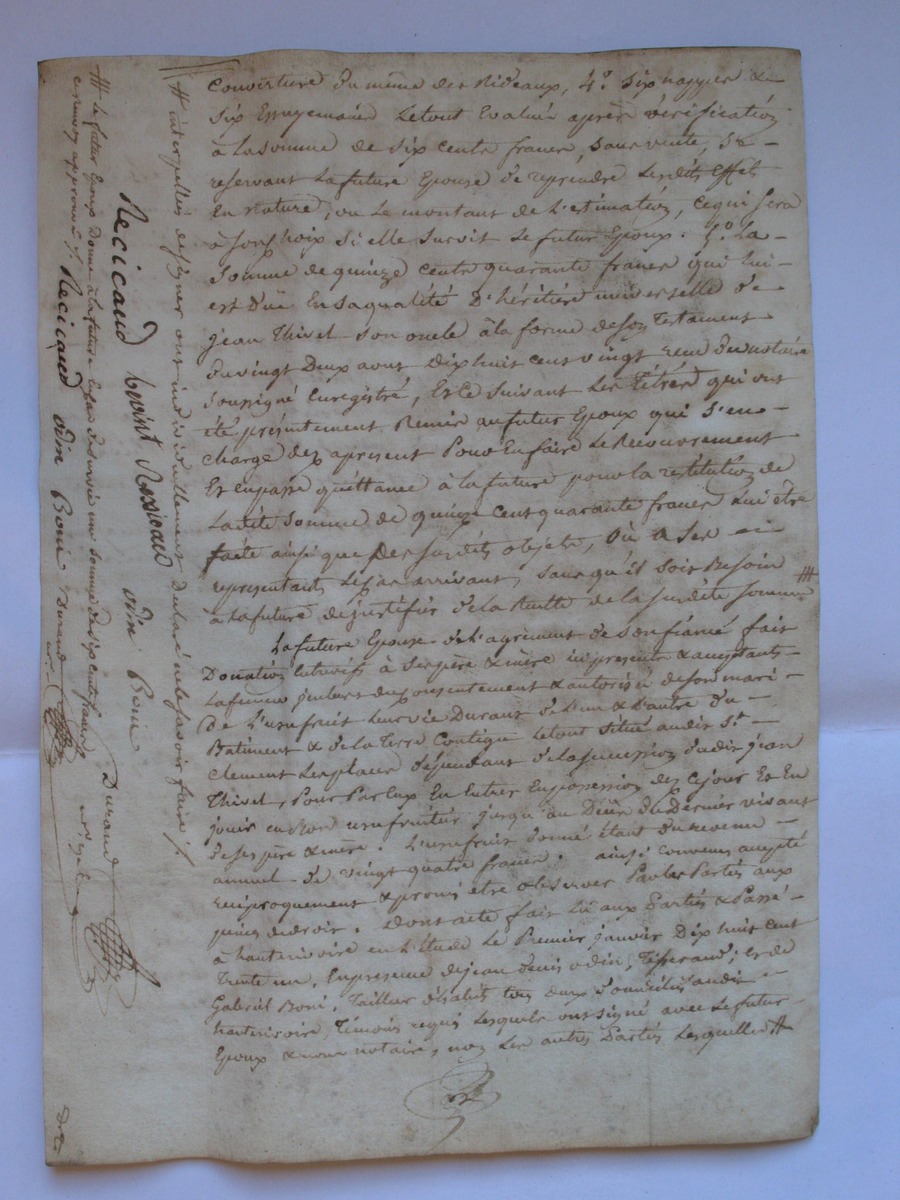 Couverture du même des Rideaux, 4.° Six nappes &
Six Essuyemains Letout Evalué après vérification
a Lasomme de Six cents francs, Sans vente, Se
reservant Lafuture Epouse de reprendre Lesdits Effets
En nature, ou Le montant de L'estimation, cequi Sera
a Son Choix Si elle Survit Le futur Epoux. 5.° La
Somme de quinze cents quarante francs qui lui
est Düe En Saqualité D'hérítière universelle de
jean Thivel Son oncle à la forme de Son Testament
du vingt Deux aout Dixhuit cent vingt recu Du notaire
Soussigné Enregistré, Et Ce Suivant Les Titres qui ont
été présentement Remis aufutur Epoux qui S'en
charge dez apresent Pour En faire Le Recouvrement
Et enpasse quittance à Lafuture pour la restitution de
Ladite Somme de quinze Cent quarante francs lui être
faite ainsi que Des Susdits objets, Ou a Ses
représentants Lecas arrivant, Sans qu'il Soit Besoin
a Lafuture dejustifier de La Recette de La Susdite Somme #
Lafuture Epouse de L'agrément de Son fiancé fait
Donation Entrevifs à Ses père & mère ici présents & acceptants
La femme du consentement & autorisé de Son mari
De L'usufruit Leur vie Durant de L'un & L'autre du
Batiment & de La Terre Contigue Letout Situé audit S.t
Clement Les places dépendant de La Succession dudit jean
Thivel, Pour Par Eux En Entrer En possession dez Cejour Et En
jouir en Bon usufruitier jusqu'au Décès Du Dernier vivant
de Ses père & mère. L'usufruit donné étant du revenu
annuel de vingt quatre francs. ainsi convenu accepté
réciproquement & promis etre observer Par Les Parties aux
peines de droit. Dont acte fait Lu aux Parties & Passé
a hauterivoire en L'étude Le Premier janvier Dix huit cent
Trente un, En présence de jean denis odin, Tisserand, Et de
Gabriel Boni, Tailleur d'habits tous deux Domiciliés audit
hauterivoire, Témoins requis Lesquels ont signé avec Lefutur
Epoux & nous notaire, non Les autres Parties Lesquelles #
# interpellés de Signer ont individuellement declaré ne le savoir faire /.
Recicaud benoint Ressicaud odin Boni
Durand
# Le futur Epoux Donne à Lafuture En cas de Survie une Somme de Six cents francs
ce renvoy approuvé /. Recicaud odin Boni Durand